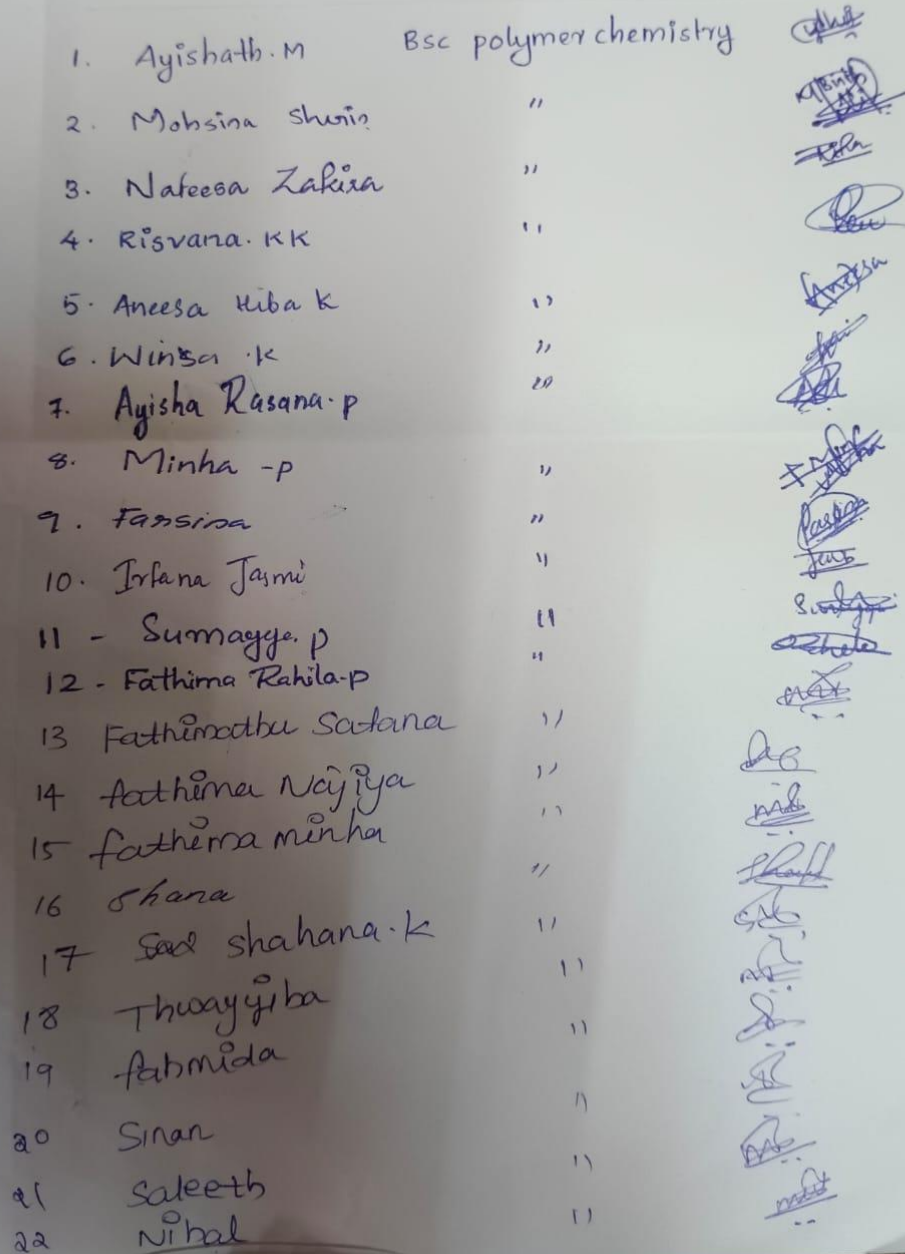 1. Ayishath.M Bsc polymer chemistry
2. Mohsina Sherin "
3. Nafeesa Zakira "
4. Risvana.KK "
5. Aneesa Hiba K "
6. Winsa .K "
7. Ayisha Rasana.p "
8. Minha -p "
9. Farsina "
10. Irfana Jasmi "
11 - Sumayye.p "
12 - Fathima Rahila-p "
13 Fathimathu Safana "
14 fathima Najiya "
15 fathima minha "
16 Shana "
17 shahana.k "
18 Thwayyiba "
19 fahmida "
20 Sinan "
21 Saleeth "
22 Nihal "